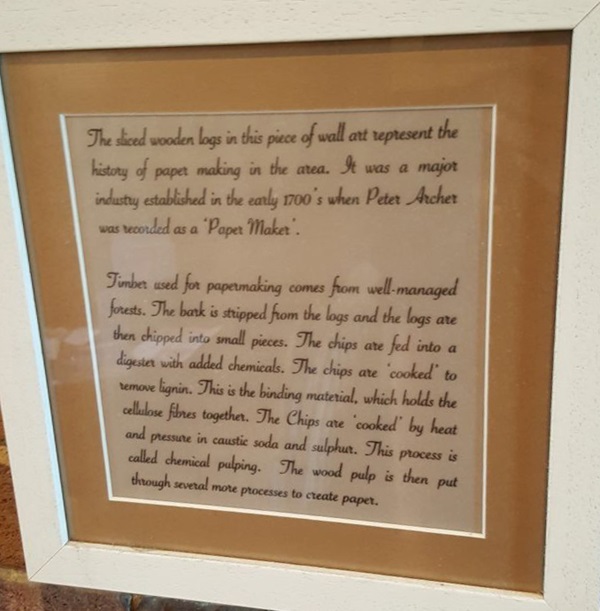 The sliced wooden logs in this piece of wall art represent the
history of paper making in the area. It was a major
industry established in the early 1700's when Peter Archer
was recorded as a 'Paper Maker'.
Timber used for papermaking comes from well-managed
forests. The bark is stripped from the logs and the logs are
then chipped into small pieces. The chips are fed into a
digester with added chemicals. The chips are 'cooked' to
remove lignin. This is the binding material, which holds the
cellulose fibres together. The Chips are 'cooked' by heat
and pressure in caustic soda and sulphur. This process is
called chemical pulping. The wood pulp is then put
through several more processes to create paper.